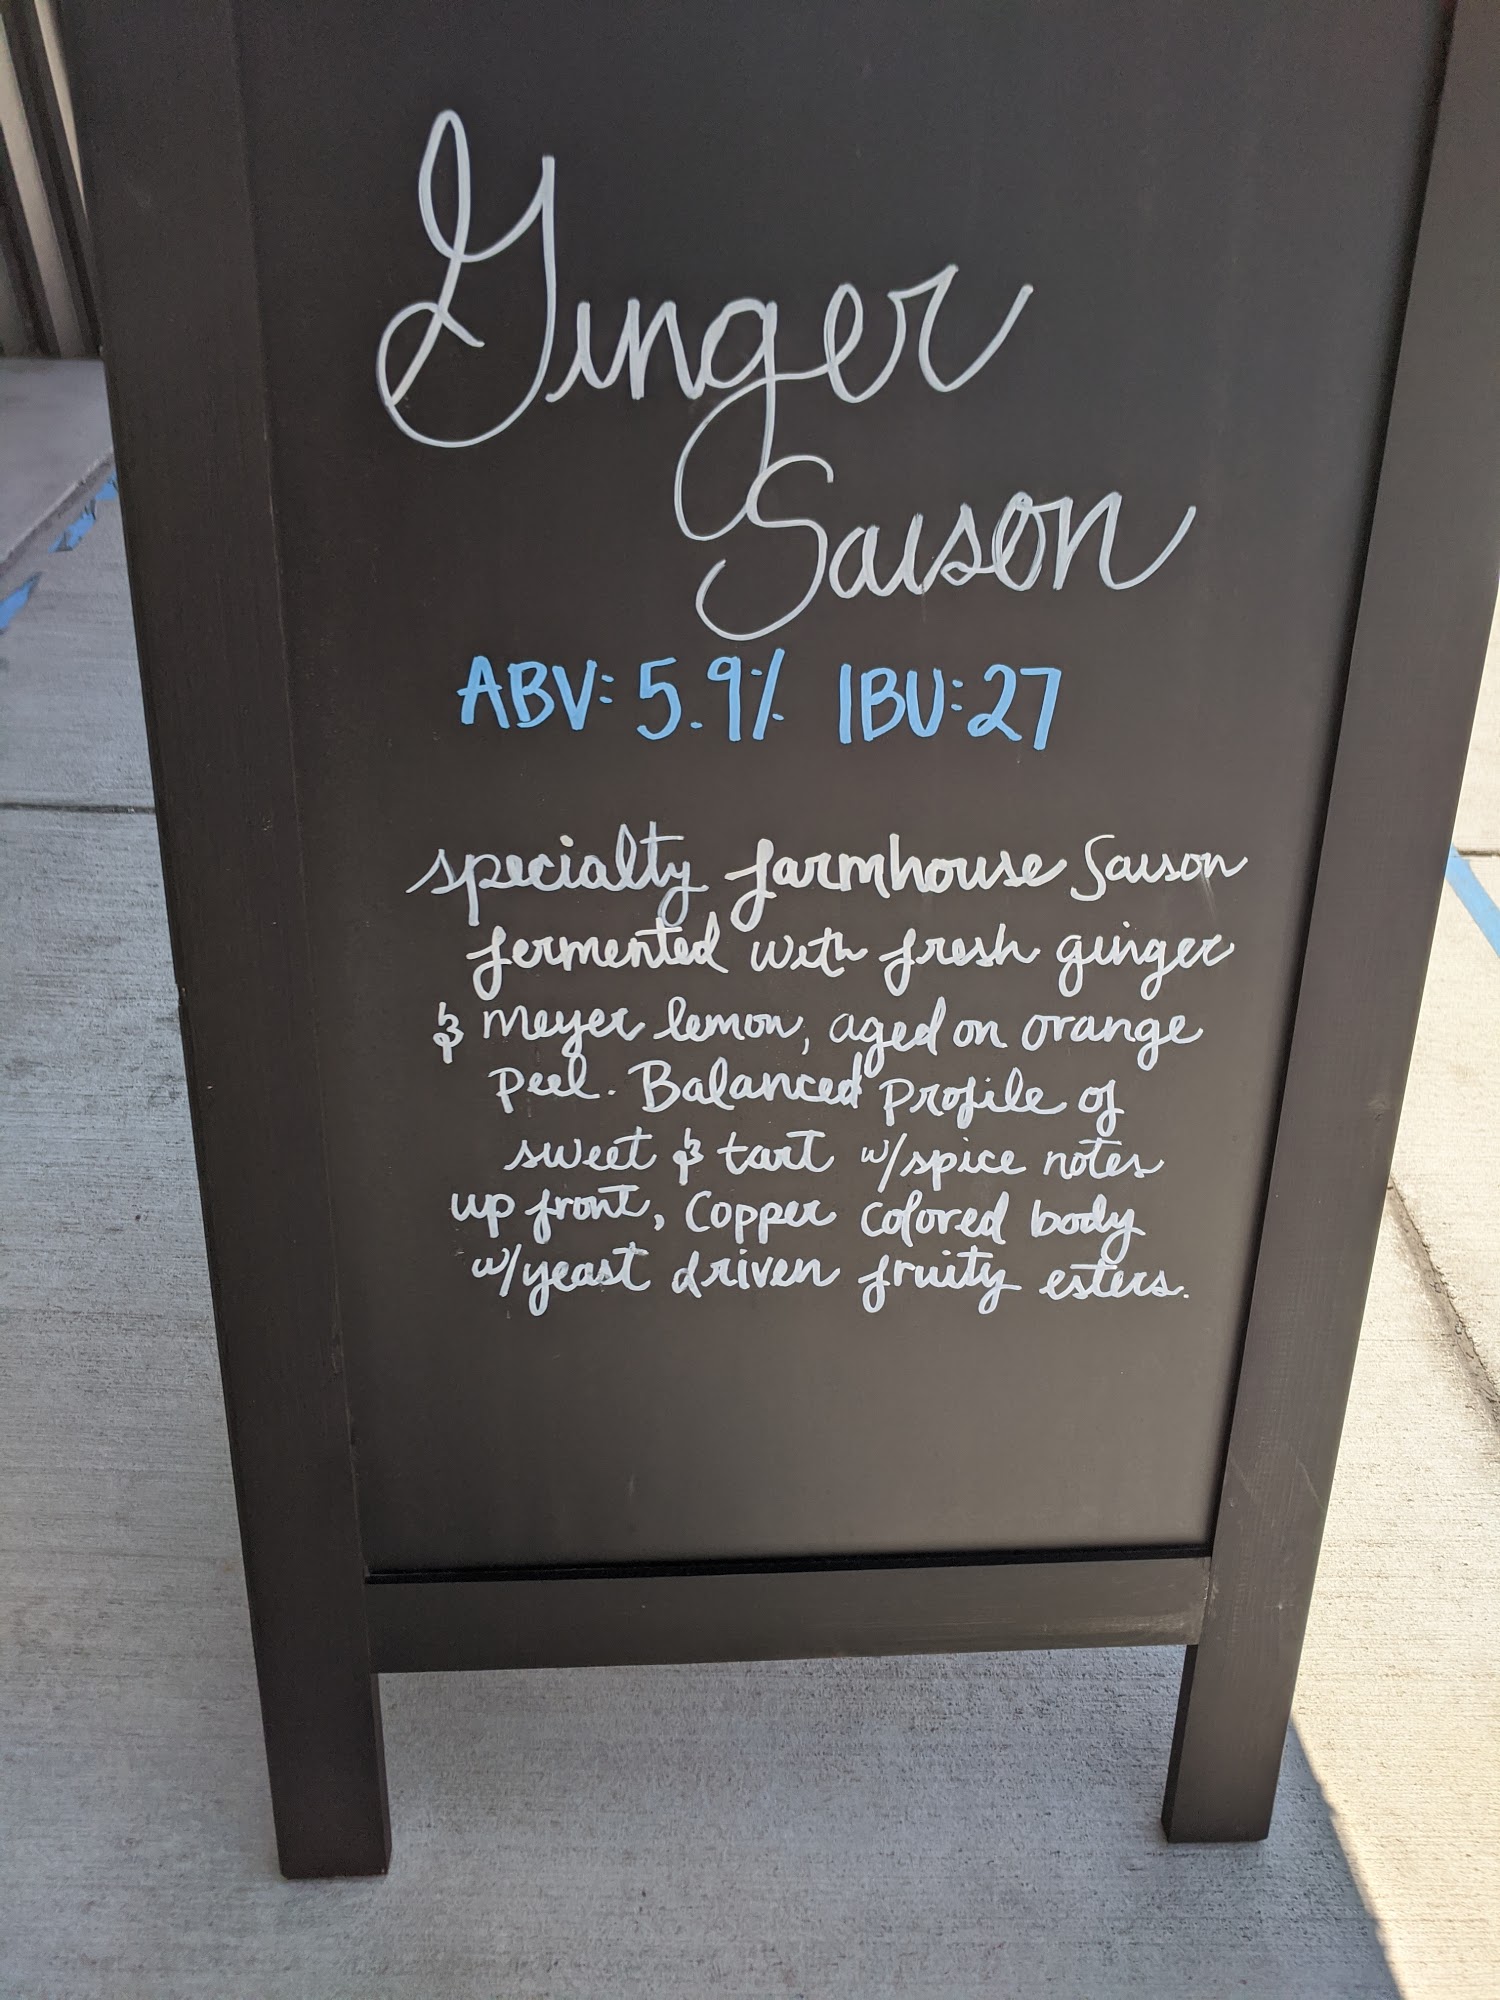 Ginger
Saison
ABV: 5.9% IBU: 27
specialty farmhouse Saison
fermented with fresh ginger
& meyer lemon, aged on orange
peel. Balanced profile of
sweet & tart w/spice notes
up front, Copper colored body
w/yeast driven fruity esters.